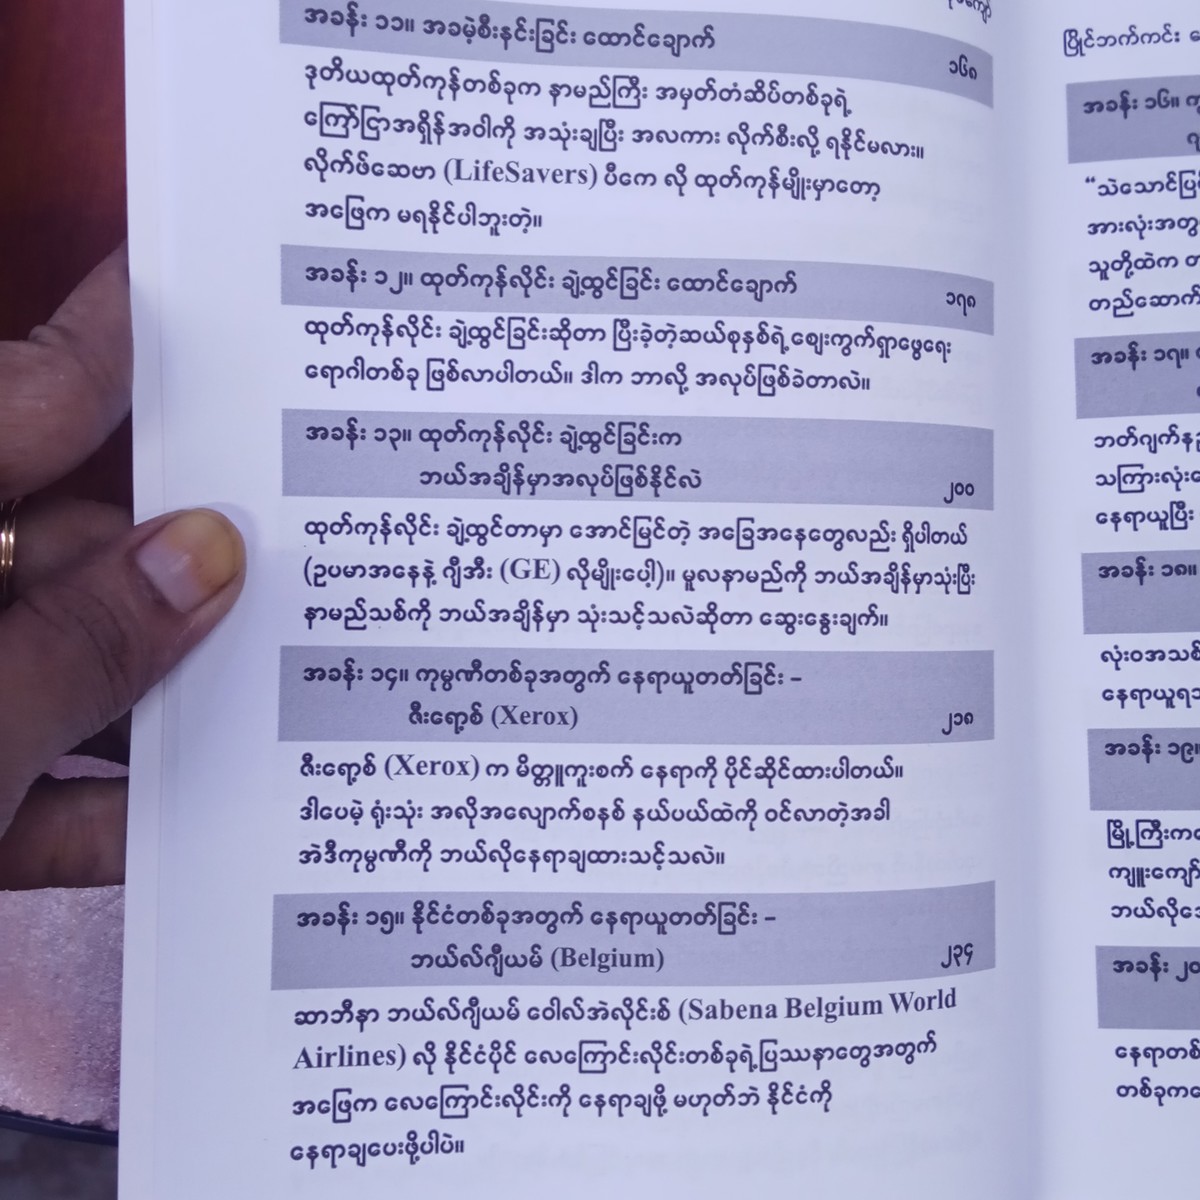 အခန်း ၁၁။ အခမဲ့စီးနင်းခြင်း ထောင်ချောက်
၁၆၈
ဒုတိယထုတ်ကုန်တစ်ခုက နာမည်ကြီး အမှတ်တံဆိပ်တစ်ခုရဲ့
ကြော်ငြာအရှိန်အဝါကို အသုံးချပြီး အလကား လိုက်စီးလို့ ရနိုင်မလား။
လိုက်ဖ်ဆေဗာ (LifeSavers) ပီကေ လို ထုတ်ကုန်မျိုးမှာတော့
အဖြေက မရနိုင်ပါဘူးတဲ့။
အခန်း ၁၂။ ထုတ်ကုန်လိုင်း ချဲ့ထွင်ခြင်း ထောင်ချောက်
၁၇၈
ထုတ်ကုန်လိုင်း ချဲ့ထွင်ခြင်းဆိုတာ ပြီးခဲ့တဲ့ဆယ်စုနှစ်ရဲ့ ဈေးကွက်ရှာဖွေရေး
ရောဂါတစ်ခု ဖြစ်လာပါတယ်။ ဒါက ဘာလို့ အလုပ်ဖြစ်ခဲတာလဲ။
အခန်း ၁၃။ ထုတ်ကုန်လိုင်း ချဲ့ထွင်ခြင်းက
ဘယ်အချိန်မှာအလုပ်ဖြစ်နိုင်လဲ
၂၀၀
ထုတ်ကုန်လိုင်း ချဲ့ထွင်တာမှာ အောင်မြင်တဲ့ အခြေအနေတွေလည်း ရှိပါတယ်
(ဥပမာအနေနဲ့ ဂျီအီး (GE) လိုမျိုးပေါ့)။ မူလနာမည်ကို ဘယ်အချိန်မှာသုံးပြီး
နာမည်သစ်ကို ဘယ်အချိန်မှာ သုံးသင့်သလဲဆိုတာ ဆွေးနွေးချက်။
အခန်း ၁၄။ ကုမ္ပဏီတစ်ခုအတွက် နေရာယူတတ်ခြင်း –
ဇီးရော့စ် (Xerox)
၂၁၈
ဇီးရော့စ် (Xerox) က မိတ္တူကူးစက် နေရာကို ပိုင်ဆိုင်ထားပါတယ်။
ဒါပေမဲ့ ရုံးသုံး အလိုအလျောက်စနစ် နယ်ပယ်ထဲကို ဝင်လာတဲ့အခါ
အဲဒီကုမ္ပဏီကို ဘယ်လိုနေရာချထားသင့်သလဲ။
အခန်း ၁၅။ နိုင်ငံတစ်ခုအတွက် နေရာယူတတ်ခြင်း –
ဘယ်လ်ဂျီယမ် (Belgium)
၂၃၄
ဆာဘီနာ ဘယ်လ်ဂျီယမ် ဝေါလ်အဲလိုင်းစ် (Sabena Belgium World
Airlines) လို နိုင်ငံပိုင် လေကြောင်းလိုင်းတစ်ခုရဲ့ ပြဿနာတွေအတွက်
အဖြေက လေကြောင်းလိုင်းကို နေရာချဖို့ မဟုတ်ဘဲ နိုင်ငံကို
နေရာချပေးဖို့ပါပဲ။
ပြိုင်ဘက်ကင်း
အခန်း ၁၆။
“သဲသောင်ပြ
အားလုံးအတွ
သူတို့ထဲက
တည်ဆောက်
အခန်း ၁၇။
ဘတ်ဂျက်နည်
သကြားလုံး
နေရာယူပြီး
အခန်း ၁၈။
လုံးဝအသစ်
နေရာယူရ
အခန်း ၁၉။
မြို့ကြီးက
ကျူးကျော်
ဘယ်လို
အခန်း ၂၀
နေရာတစ်
တစ်ခုက